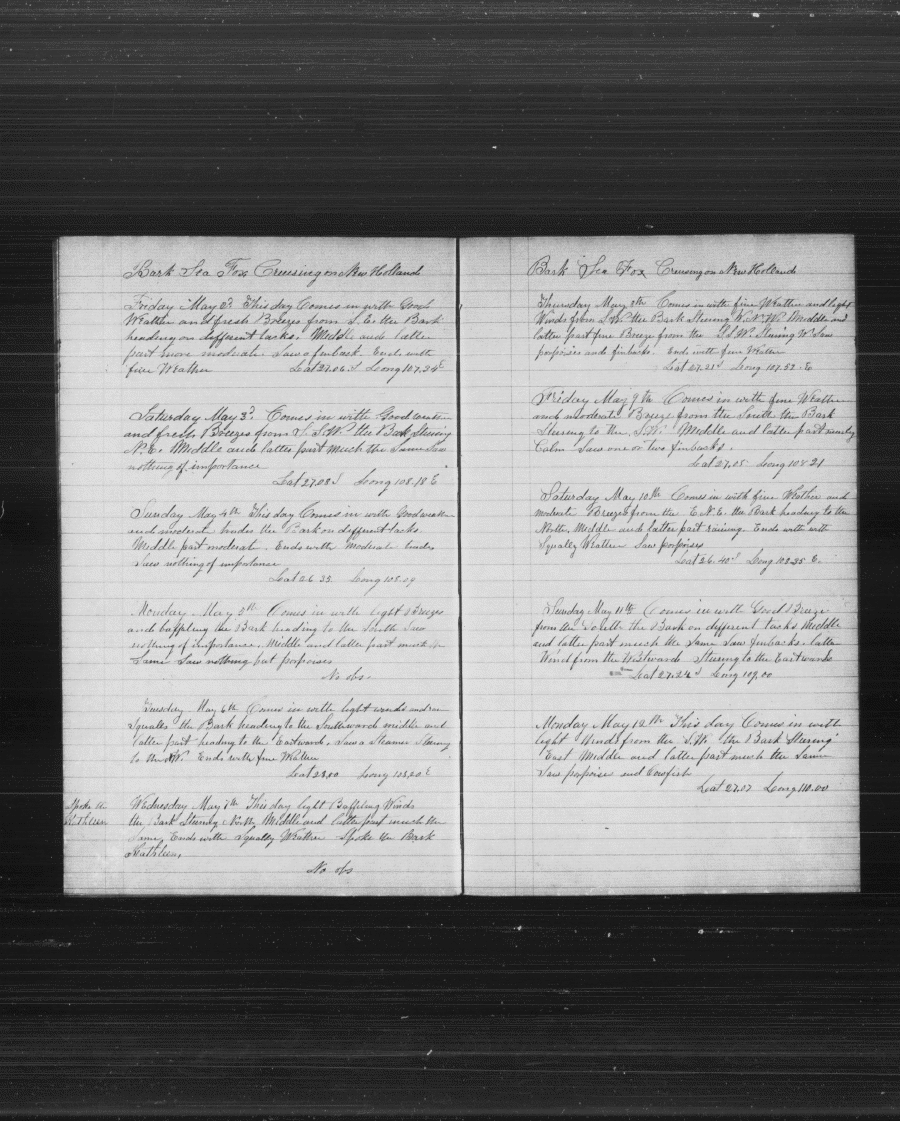 Bark Sea Fox Cruising on New Holland
Friday May 2d This day Comes in with Good
Weather and fresh Breeze from S.E. the Bark
heading on different tacks. Middle and latter
part more moderate Saw a finback. Ends with
fine Weather Lat 27.06 S Long 107.24 E
Saturday May 3d Comes in with Good weather
and fresh Breezes from S.S.W. the Bark Steering
N.E. Middle and latter part much the Same Saw
nothing of importance
Lat 27.08 S Long 108.18 E
Sunday May 4th This day Comes in with Good weather
and moderate trades the Bark on different tacks.
Middle part moderate. Ends with Moderate trades
Saw nothing of importance
Lat 26 35 Long 108.09
Monday May 5th Comes in with light Breezes
and baffling the Bark heading to the South Saw
nothing of importance. Middle and latter part much the
Same Saw nothing but porpoises
No obs.
Tuesday May 6th Comes in with light winds and rain
Squalls the Bark heading to the Southward middle and
latter part heading to the Eastward. Saw a Steamer Steering
to the N.W. Ends with fine Weather
Lat 28.00 Long 108.20 E
Spoke the
Kathleen
Wednesday May 7th This day light Baffling Winds
the Bark Steering North Middle and latter part much the
Same, Ends with Squally Weather Spoke the Bark
Kathleen.
No obs
Bark Sea Fox Cruising on New Holland
Thursday May 8th Comes in with fine Weather and light
Winds from S.W. the Bark Steering W.N.W. Middle and
latter part fine Breeze from the S.S.W. Steering W. Saw
porpoises and finbacks. Ends with fine Weather
Lat 27.23 S Long 107.52 E
Friday May 9th Comes in with fine Weather
and moderate Breeze from the South the Bark
Steering to the S.W. Middle and latter part nearly
Calm Saw one or two finbacks.
Lat 27.05 Long 108 21
Saturday May 10th Comes in with fine Weather and
moderate Breezes from the E.N.E. the Bark heading to the
North, Middle and latter part raining Ends with with
Squally Weather Saw porpoises
Lat 26.40 S Long 108.35 E.
Sunday May 11th Comes in with Good Breeze
from the South the Bark on different tacks Middle
and latter part much the Same Saw finbacks. latter
Wind from the Westward Steering to the Eastward
Lat 27.24 S Long 109.00
Monday May 12th This day Comes in with
light Winds from the S.W. the Bark Steering
East Middle and latter part much the Same
Saw porpoises and Cowfish
Lat 27.07 Long 110.00